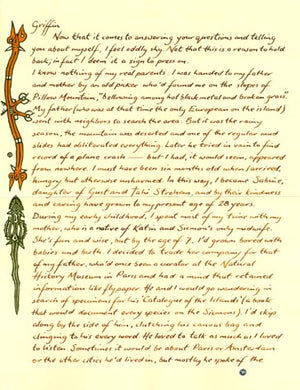 Griffin
Now that it comes to answering your questions and telling
you about myself, I feel oddly shy. Not that this is a reason to hold
back; in fact I deem it a sign to press on.
I know nothing of my real parents. I was handed to my father
and mother by an old picker who'd found me on the slopes of
Pillow Mountain, "bellowing among hot black metal and broken grass."
My father (who was at that time the only European on the island)
went with neighbors to search the area. But it was the rainy
season, the mountain was deserted and one of the regular mud
slides had obliterated everything. Later he tried in vain to find
record of a plane crash — but I had, it would seem, appeared
from nowhere. I must have been six months old when I arrived,
hungry but otherwise unharmed. In this way, I became Sabine,
daughter of Gust and Tahi Strohem, and by their kindness
and caring have grown to my present age of 28 years.
During my early childhood, I spent most of my time with my
mother, who is a native of Katin and Sicmon's only midwife.
She's fun and wise, but by the age of 7, I'd grown bored with
babies and birth. I decided to trade her company for that
of my father, who'd once been a curator at the Natural
History Museum in Paris and had a mind that retained
information like flypaper. He and I would go wandering in
search of specimens for his Catalogue of the Islands (a book
that would document every species on the Sicmons). I'd skip
along by the side of him, clutching his canvas bag and
clinging to his every word. He loved to talk as much as I loved
to listen. Sometimes it would be about Paris or Amsterdam
or the other cities he'd lived in, but mostly he spoke of the